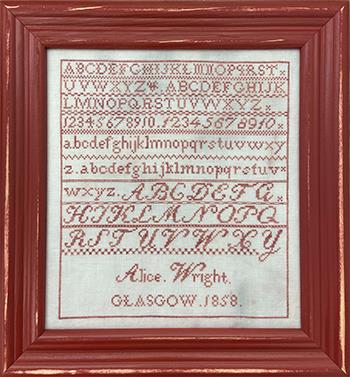 ABCDEFGHIJKLMNOPQRST.
UVWXYZ. ABCDEFGHIJK
LMNOPQRSTUVWXYZ.
12345678910. 12345678910.
abcdefghijklmnopqrstuvwxy
z. abcdefghijklmnopqrstuv
wxyz. ABCDEFG
HIJKLMNOPQ
RSTUVWXY
Alice. Wright.
GLASGOW. 1858.